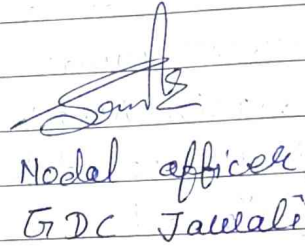 Nodal officer
GDC Jawali